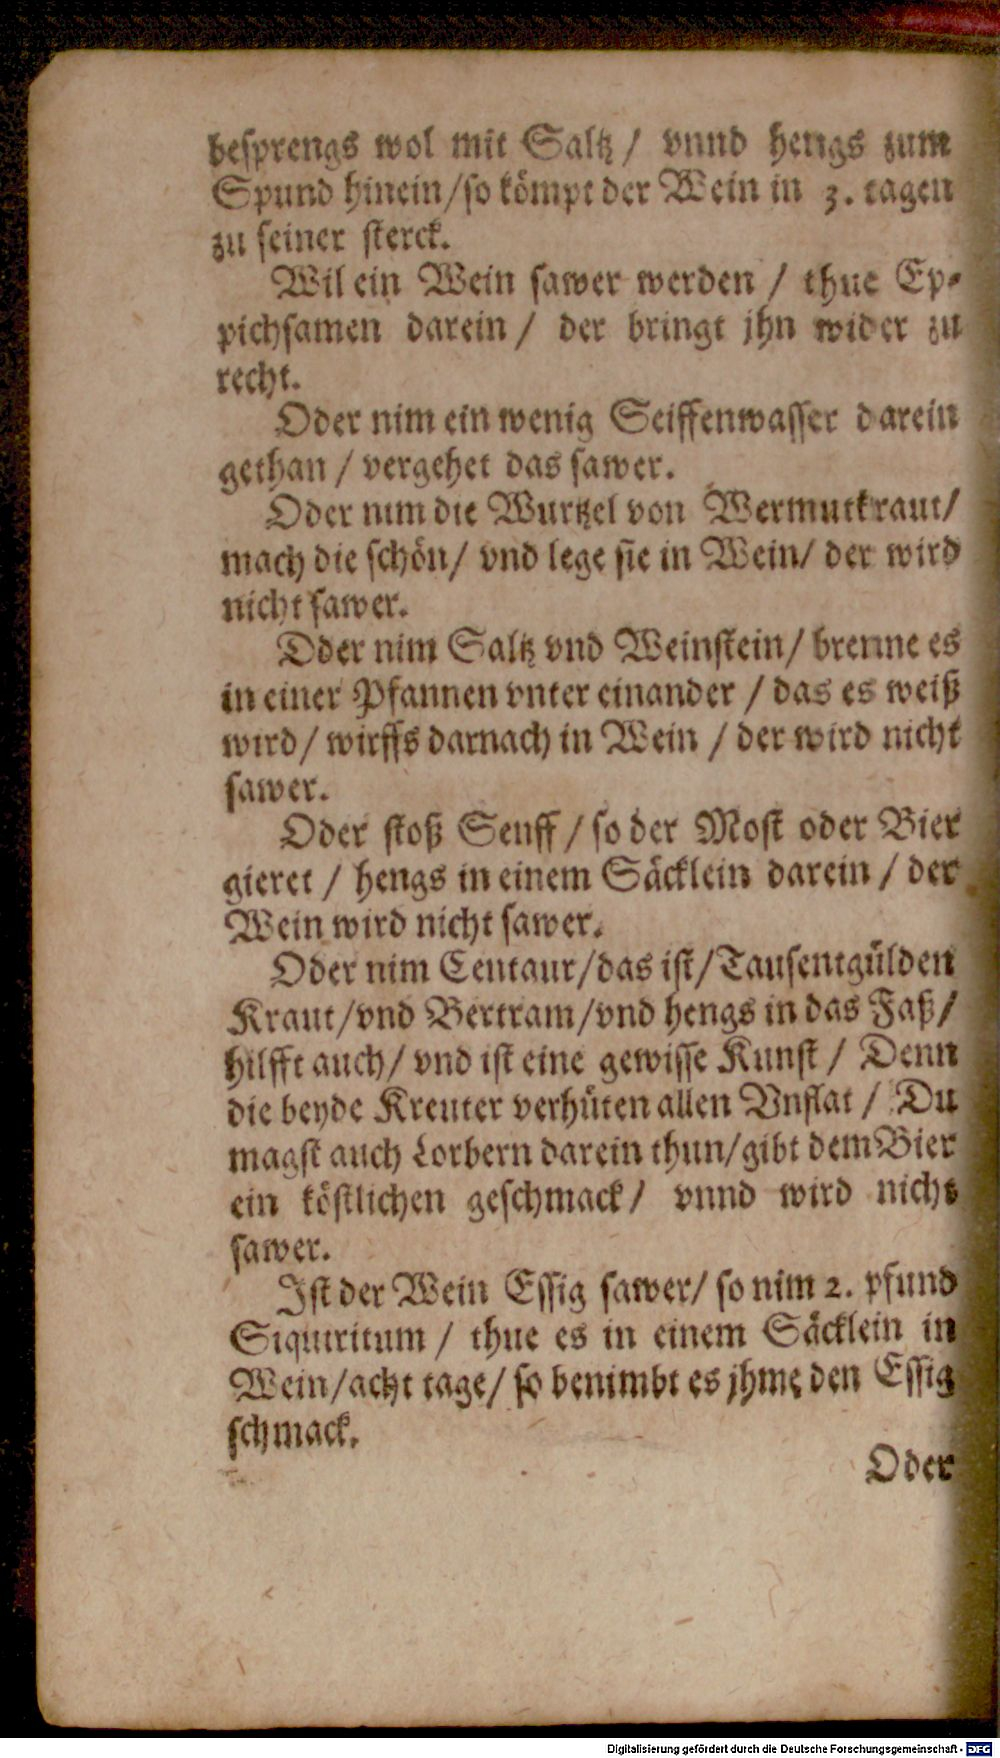 besprengs wol mit Saltz / vnnd hengs zum
Spund hinein/so kömpt der Wein in 3. tagen
zu seiner sterck.
Wil ein Wein sawer werden / thue Ep-
pichsamen darein / der bringt jhn wider zu
recht.
Oder nim ein wenig Seiffenwasser darein
gethan / vergehet das sawer.
Oder nim die Wurtzel von Wermutkraut/
mach die schön/ vnd lege sie in Wein/ der wird
nicht sawer.
Oder nim Saltz vnd Weinstein/ brenne es
in einer Pfannen vnter einander / das es weiß
wird/ wirffs darnach in Wein / der wird nicht
sawer.
Oder stoß Senff / so der Most oder Bier
gieret / hengs in einem Säcklein darein / der
Wein wird nicht sawer.
Oder nim Centaur/das ist/Tausentgülden
Kraut/vnd Bertram/vnd hengs in das Faß/
hilfft auch/ vnd ist eine gewisse Kunst / Denn
die beyde Kreuter verhüten allen Vnflat / Du
magst auch Lorbern darein thun/gibt dem Bier
ein köstlichen geschmack/ vnnd wird nicht
sawer.
Ist der Wein Essig sawer/ so nim 2. pfund
Siquiritum / thue es in einem Säcklein in
Wein/acht tage/ so benimbt es jhme den Essig
schmack.
Oder
Digitalisierung gefördert durch die Deutsche Forschungsgemeinschaft - DFG